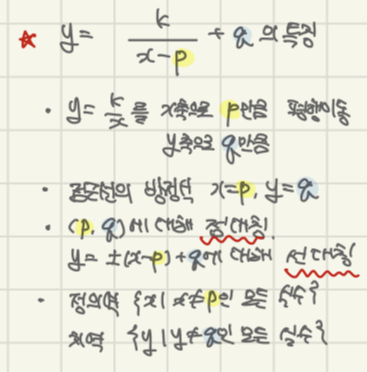 ☆ y = k/(x-p) + q 의 특징
· y = k/x 를 x축으로 p만큼 평행이동
y축으로 q만큼
· 점근선의 방정식 x=p, y=q
· (p, q)에 대해 점대칭.
y = ±(x-p)+q에 대해 선대칭
· 정의역 {x | x≠p인 모든 실수}
치역 {y | y≠q인 모든 실수}